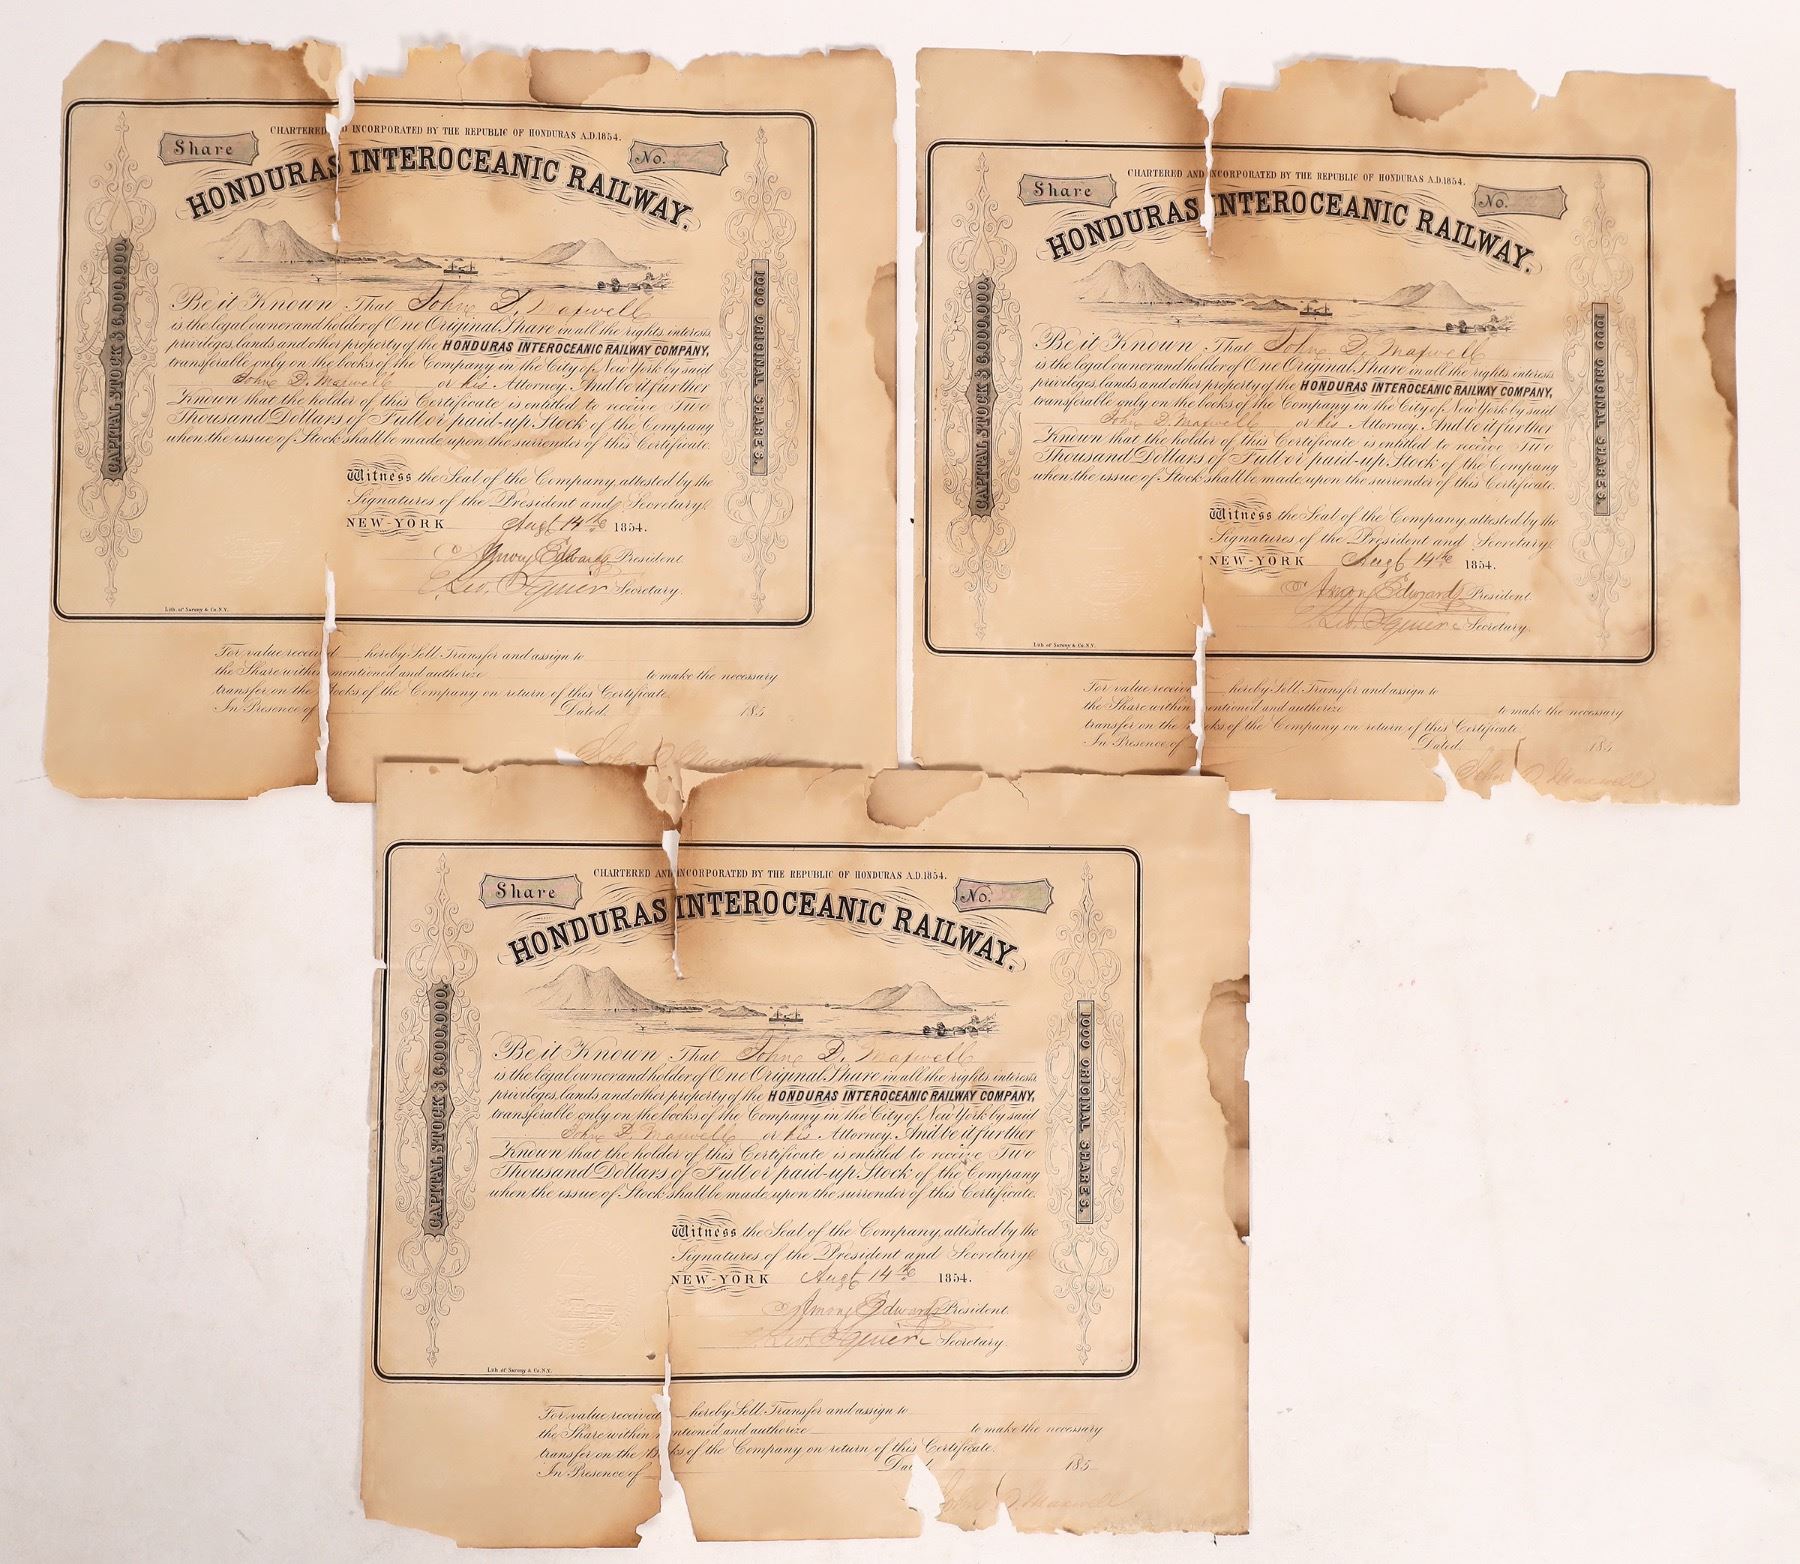 CHARTERED INCORPORATED BY THE REPUBLIC OF HONDURAS A.D.1854.
Share
No.
HONDURAS INTEROCEANIC RAILWAY.
CAPITAL STOCK $ 6.000.000.
1000 ORIGINAL SHARES.
Be it Known That John D. Maxwell
is the legal owner and holder of One Original Share in all the rights, interests,
privileges, lands and other property of the HONDURAS INTEROCEANIC RAILWAY COMPANY,
transferable only on the books of the Company in the City of New York by said
John D. Maxwell or his Attorney. And be it further
Known that the holder of this Certificate is entitled to receive Two
Thousand Dollars of Full or paid-up Stock of the Company
when the issue of Stock shall be made upon the surrender of this Certificate.
Witness the Seal of the Company, attested by the
Signatures of the President and Secretary.
NEW-YORK Augt 14th 1854.
Amory Edwards President.
Geo. Squier Secretary.
Lith. of Sarony & Co. N.Y.
For value received hereby Sell, Transfer and assign to
the Share within mentioned and authorize to make the necessary
transfer on the Books of the Company on return of this Certificate.
In Presence of Dated 185
John D Maxwell
CHARTERED AND INCORPORATED BY THE REPUBLIC OF HONDURAS A.D.1854.
Share
No.
HONDURAS INTEROCEANIC RAILWAY.
CAPITAL STOCK $ 6.000.000.
1000 ORIGINAL SHARES.
Be it Known That John D. Maxwell
is the legal owner and holder of One Original Share in all the rights, interests,
privileges, lands and other property of the HONDURAS INTEROCEANIC RAILWAY COMPANY,
transferable only on the books of the Company in the City of New York by said
John D. Maxwell or his Attorney. And be it further
Known that the holder of this Certificate is entitled to receive Two
Thousand Dollars of Full or paid-up Stock of the Company
when the issue of Stock shall be made upon the surrender of this Certificate.
Witness the Seal of the Company, attested by the
Signatures of the President and Secretary.
NEW-YORK Augt 14th 1854.
Amory Edwards President.
Geo. Squier Secretary.
Lith. of Sarony & Co. N.Y.
For value received hereby Sell, Transfer and assign to
the Share within mentioned and authorize to make the necessary
transfer on the Books of the Company on return of this Certificate.
In Presence of Dated 185
John D Maxwell
CHARTERED AND INCORPORATED BY THE REPUBLIC OF HONDURAS A.D.1854.
Share
No.
HONDURAS INTEROCEANIC RAILWAY.
CAPITAL STOCK $ 6.000.000.
1000 ORIGINAL SHARES.
Be it Known That John D. Maxwell
is the legal owner and holder of One Original Share in all the rights, interests,
privileges, lands and other property of the HONDURAS INTEROCEANIC RAILWAY COMPANY,
transferable only on the books of the Company in the City of New York by said
John D. Maxwell or his Attorney. And be it further
Known that the holder of this Certificate is entitled to receive Two
Thousand Dollars of Full or paid-up Stock of the Company
when the issue of Stock shall be made upon the surrender of this Certificate.
Witness the Seal of the Company, attested by the
Signatures of the President and Secretary.
NEW-YORK Augt 14th 1854.
Amory Edwards President.
Geo. Squier Secretary.
Lith. of Sarony & Co. N.Y.
For value received hereby Sell, Transfer and assign to
the Share within mentioned and authorize to make the necessary
transfer on the Books of the Company on return of this Certificate.
In Presence of Dated 185
John D Maxwell